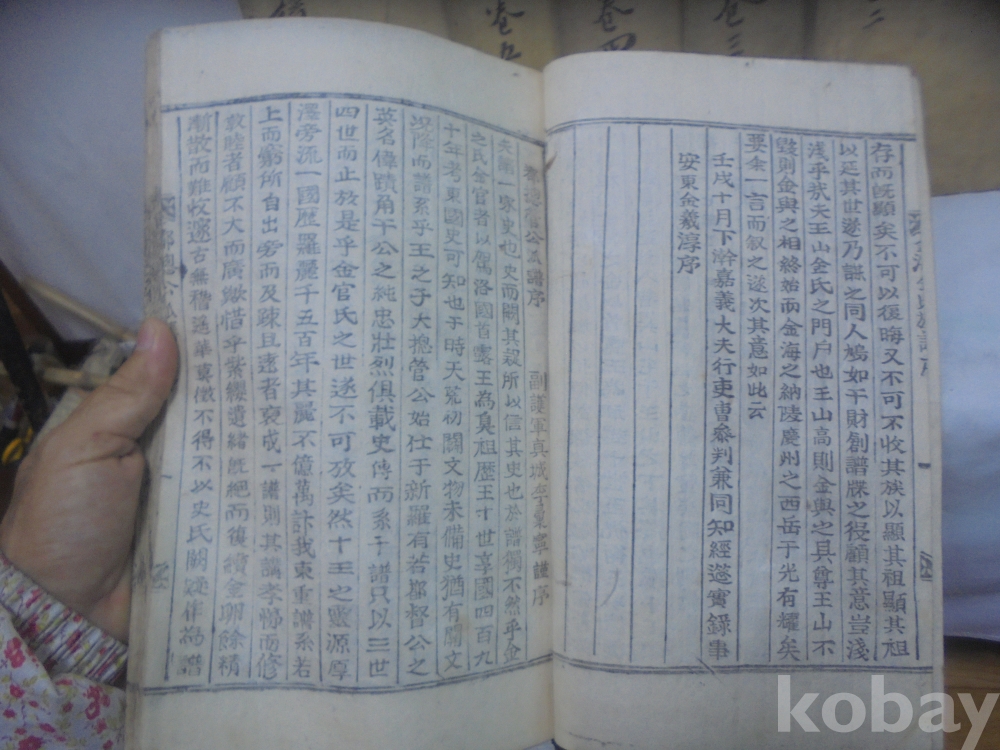 卷五
卷四
卷三
存而旣顯矣不可以復晦又不可不收其族以顯其祖顯其祖
以延其世遂乃謀之同人鳩如干財創譜牒之役顧其意豈淺
淺乎哉夫王山金氏之門戶也王山高則金與之具尊王山不
毀則金與之相終始而金海之納陵慶州之西岳于光有耀矣
要余一言而叙之遂次其意如此云
壬戌十月下澣嘉義大夫行吏曹參判兼同知經筵實錄事
安東金羲淳序
都摠管公派譜序
副護軍真城李彙寧謹序
夫譜一家史也史而闕其疑所以信其史也於譜獨不然乎金
之氏金官者以駕洛國首露王為鼻祖歷王十世享國四百九
十年考東國史可知也于時天荒初闢文物未備史猶有闕文
況降而譜系乎王之子大摠管公始仕于新羅有若都督公之
英名偉蹟角干公之純忠壯烈俱載史傳而系于譜只以三世
四世而止放是乎金官氏之世遂不可放矣然十王之靈源厚
澤旁流一國歷羅麗千五百年其麗不億萬計我東重譜系若
上而窮所自出旁而及踈且遠者裒成一譜則其講孝悌而修
敦睦者顧不大而廣歟惜乎紫纓遺緒旣絕而復續金卵餘精
漸散而難收邃古無稽遙華莫徵不得不以史氏闕疑作為譜
kobay